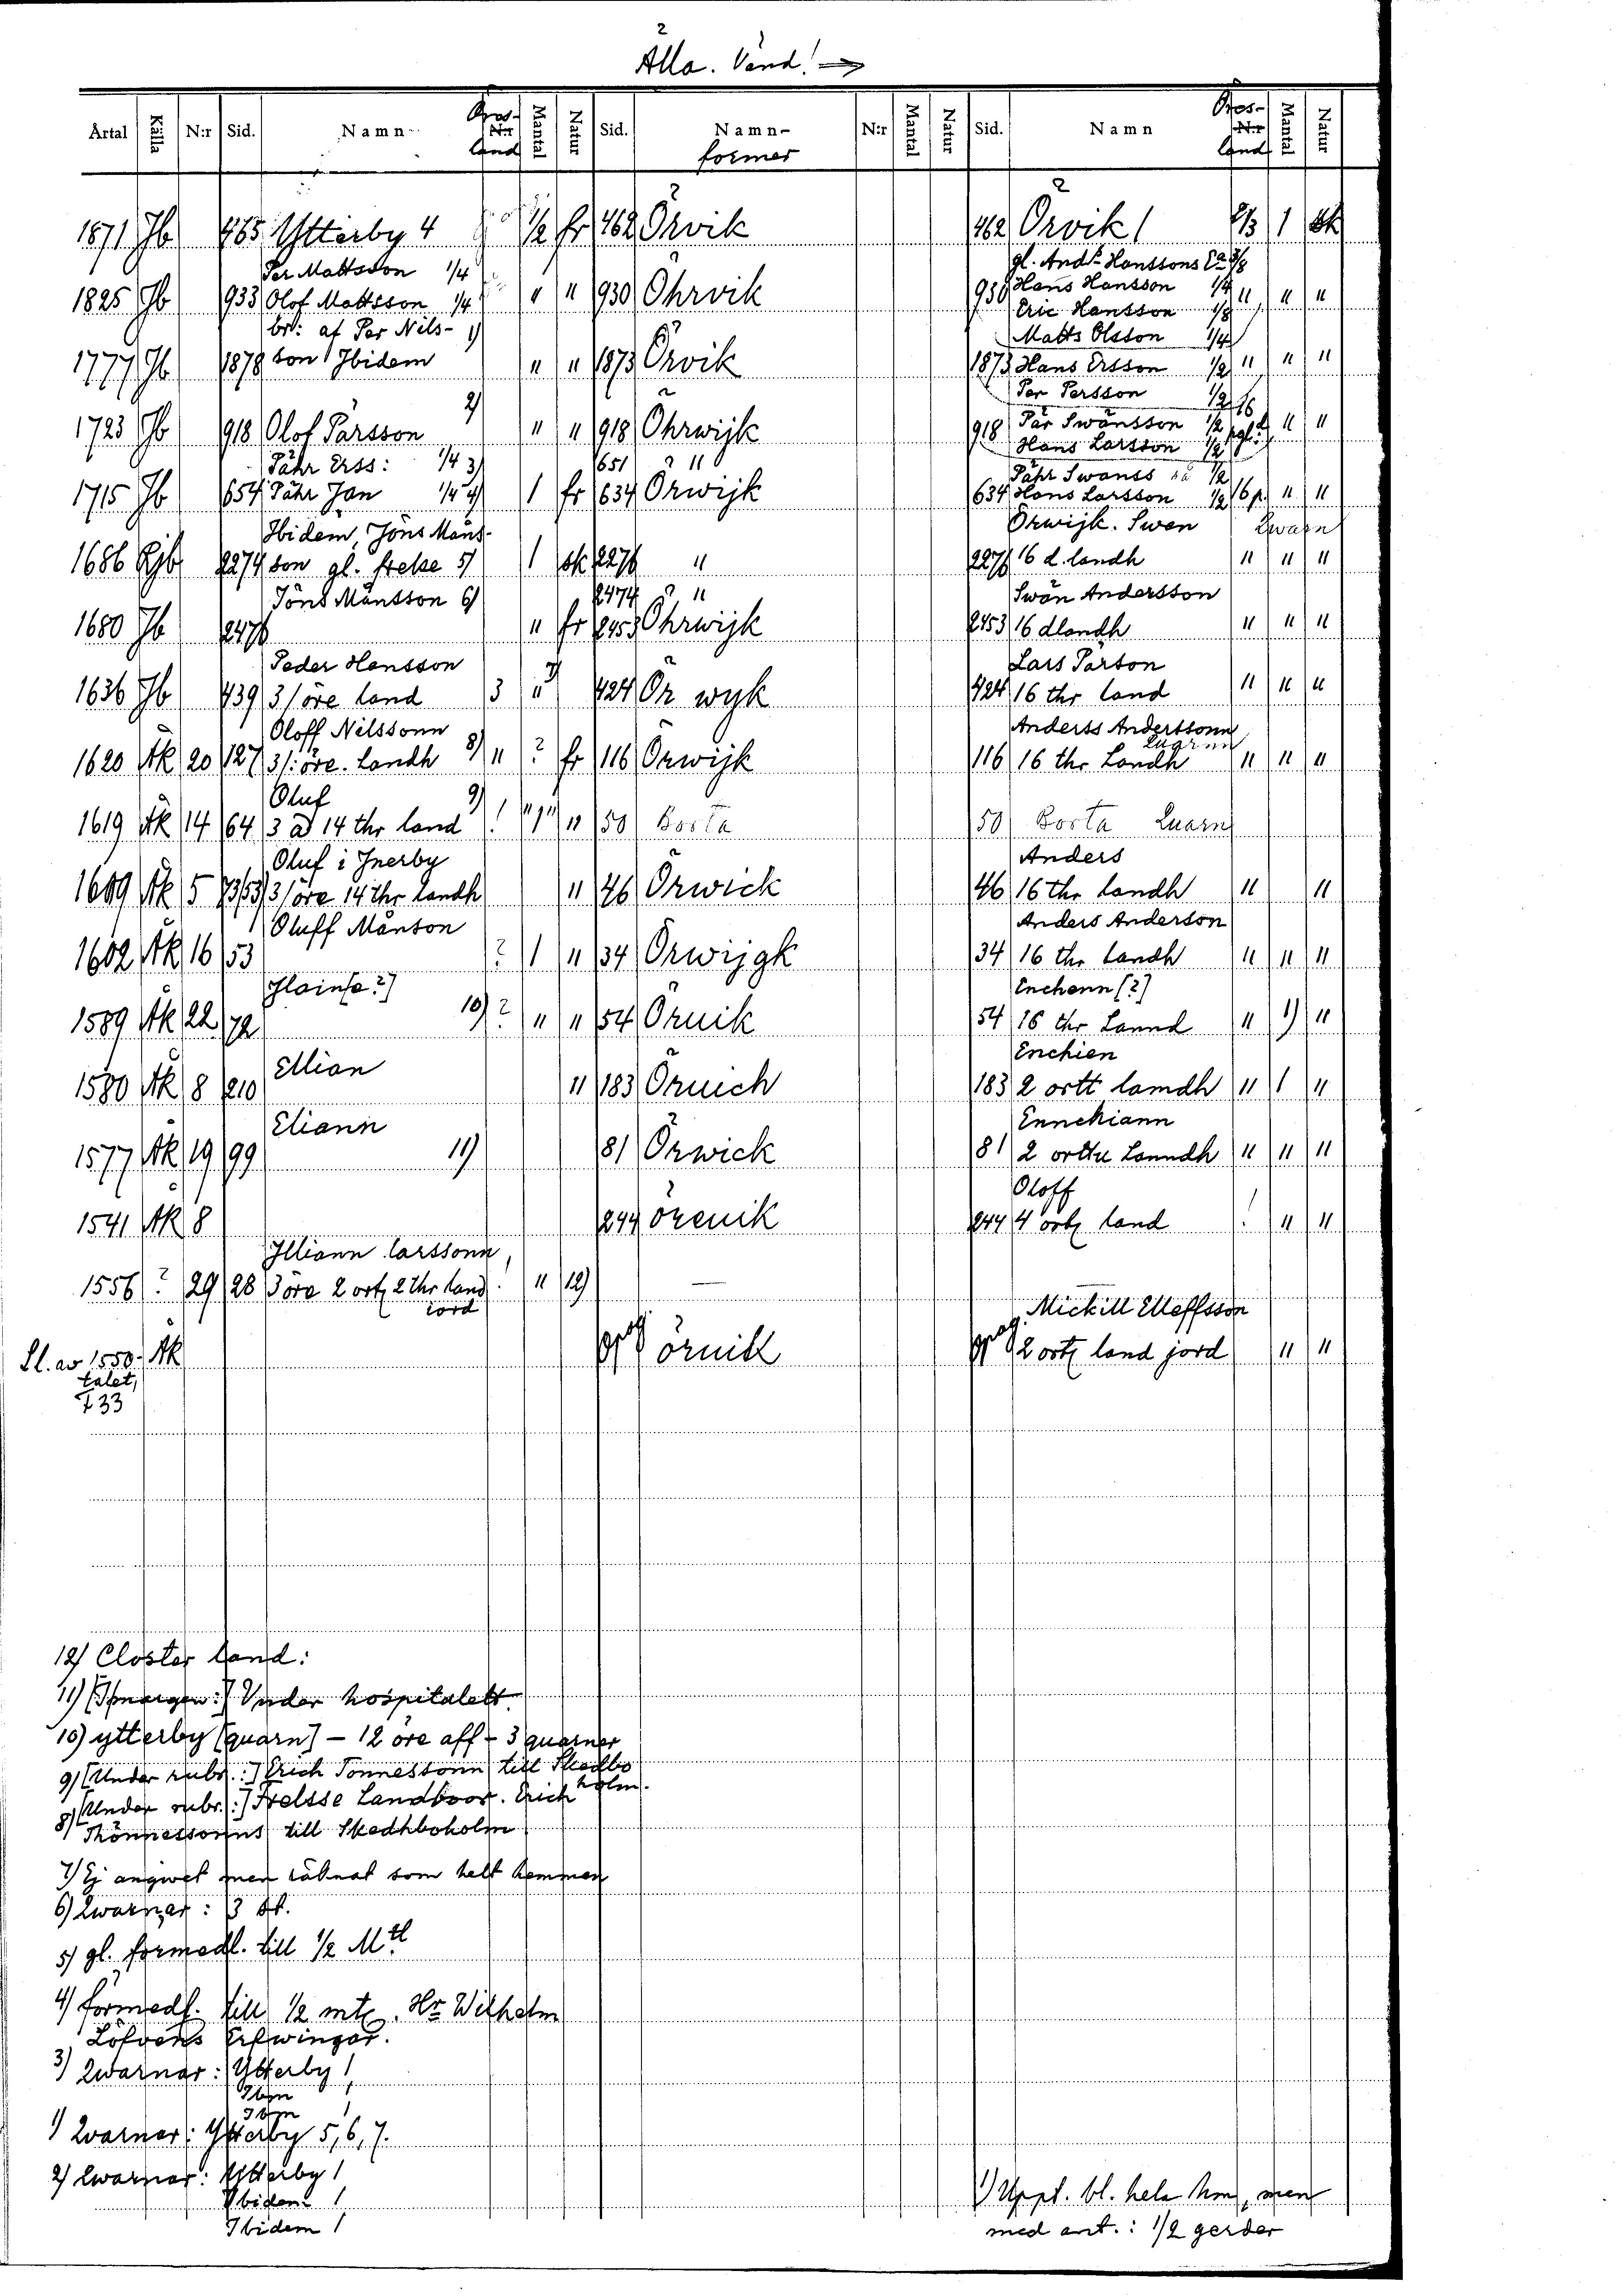 Älla. Vänd! →
Årtal Källa N:r Sid. Namn Öres- N:r land Mantal Natur Sid. Namn-former N:r Mantal Natur Sid. Namn Öres- N:r land Mantal Natur
1871 Jb 465 Ytterby 4 1/2 fr 462 Örvik 462 Örvik 1 2/3 1 sk
Per Mattsson 1/4 gl. And:s Hanssons
1825 Jb 933 Olof Mattsson 1/4 " " 930 Öhrvik 930 Hans Hansson 1/4 " " "
Eric Hansson 1/8
br: af Per Nils- 1) Matts Olsson 1/4
1777 Jb 1878 son Ibidem " " 1873 Örvik 1873 Hans Ersson 1/2 " " "
2) Per Persson 1/2
1723 Jb 918 Olof Pärsson " " 918 Öhrwijk 918 Pär Swänsson 1/2 " "
Hans Larsson 1/2
Pähr Erss: 1/4 3) 651 " Pähr Swanss 1/2
1715 Jb 654 Pähr Jan 1/4 4) 1 fr 634 Örwijk 634 Hans Larsson 1/2 16 p. " "
Ibidem, Jöns Mäns- Örwijk. Swen Qwarn
1686 Rjb 2274 son gl. frelse 5) 1 sk 2276 " 2276 16 d. landh " " "
Jöns Månsson 6) 2474 " Swän Andersson
1680 Jb 2476 " fr 2453 Öhrwijk 2453 16 dlandh " " "
Peder Hansson Lars Pärson
1636 Jb 439 3/öre land 3 " 7) 424 Ör wyk 424 16 thr land " " "
Oloff Nilssonn Anderss Anderssonn
1620 Äk 20 127 3/:öre. Landh 8) " ? fr 116 Örwijk 116 16 thr Landh Quarnn " " "
Oluf 9)
1619 Äk 14 64 3 14 thr land ! " 1 " " 50 Borta 50 Borta Quarn
Oluf i Ynerby Anders
1609 Äk 5 73/53 3/öre 14 thr landh " 46 Örwick 46 16 thr landh " "
Oluff Månson Anders Anderson
1602 Äk 16 53 ? 1 " 34 Örwijgk 34 16 thr Landh " " "
10) Enchenn [?]
1589 Äk 22 72 ? " " 54 Öruik 54 16 thr Lannd " 1) "
Ellian Enchien
1580 Äk 8 210 " 183 Öruich 183 2 ortt lamdh " 1 "
Eliann Ennchiann
1577 Äk 19 99 11) 81 Örwick 81 2 Lanndh " " "
Oloff
1541 Äk 8 244 örenik 244 4 land ! " "
Illiann larssonn,
1556 ? 29 28 3 öre 2 2 thr land ! " 12) —
iord Mickill Elleffsson
Sl. av 1550- Äk örnik 2 land jord " "
talet,
f 33
12) Closter land:
11) Vnder hospitalett
10) ytterby [quarn] – 12 öre aff – 3 quarner
9) [Under rubr.:] Erich Tönnessonn till Skedbo
holm.
8) [Under rubr.:] Frelsse Landboor. Erich
Thönnessonns till Skedhboholm
7) Ej angivet men räknat som helt hemman
6) Qwarner: 3 st.
5) gl. förmedl. till 1/2 Mtl
4) förmedl. till 1/2 mtl. Hr Wilhelm
Löfvens Erfwingar.
3) Qwarnar: Ytterby 1
Ibm 1
Ibm 1
1) Qvarnar: Ytterby 5, 6, 7.
2) Qwarnar: Ytterby 1
Ibidem 1
Ibidem 1
1) Uppt. bl. hela hm, men
med ant.: 1/2 gerder